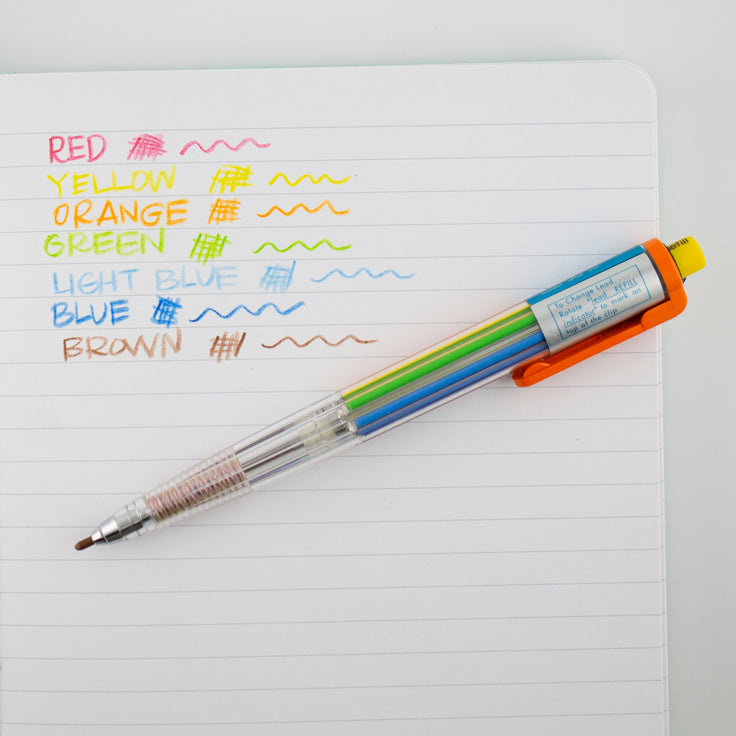 RED
YELLOW
ORANGE
GREEN
LIGHT BLUE
BLUE
BROWN
To Change Lead
Rotate "lead REFILL
indicator" to mark on
top of the clip
refill